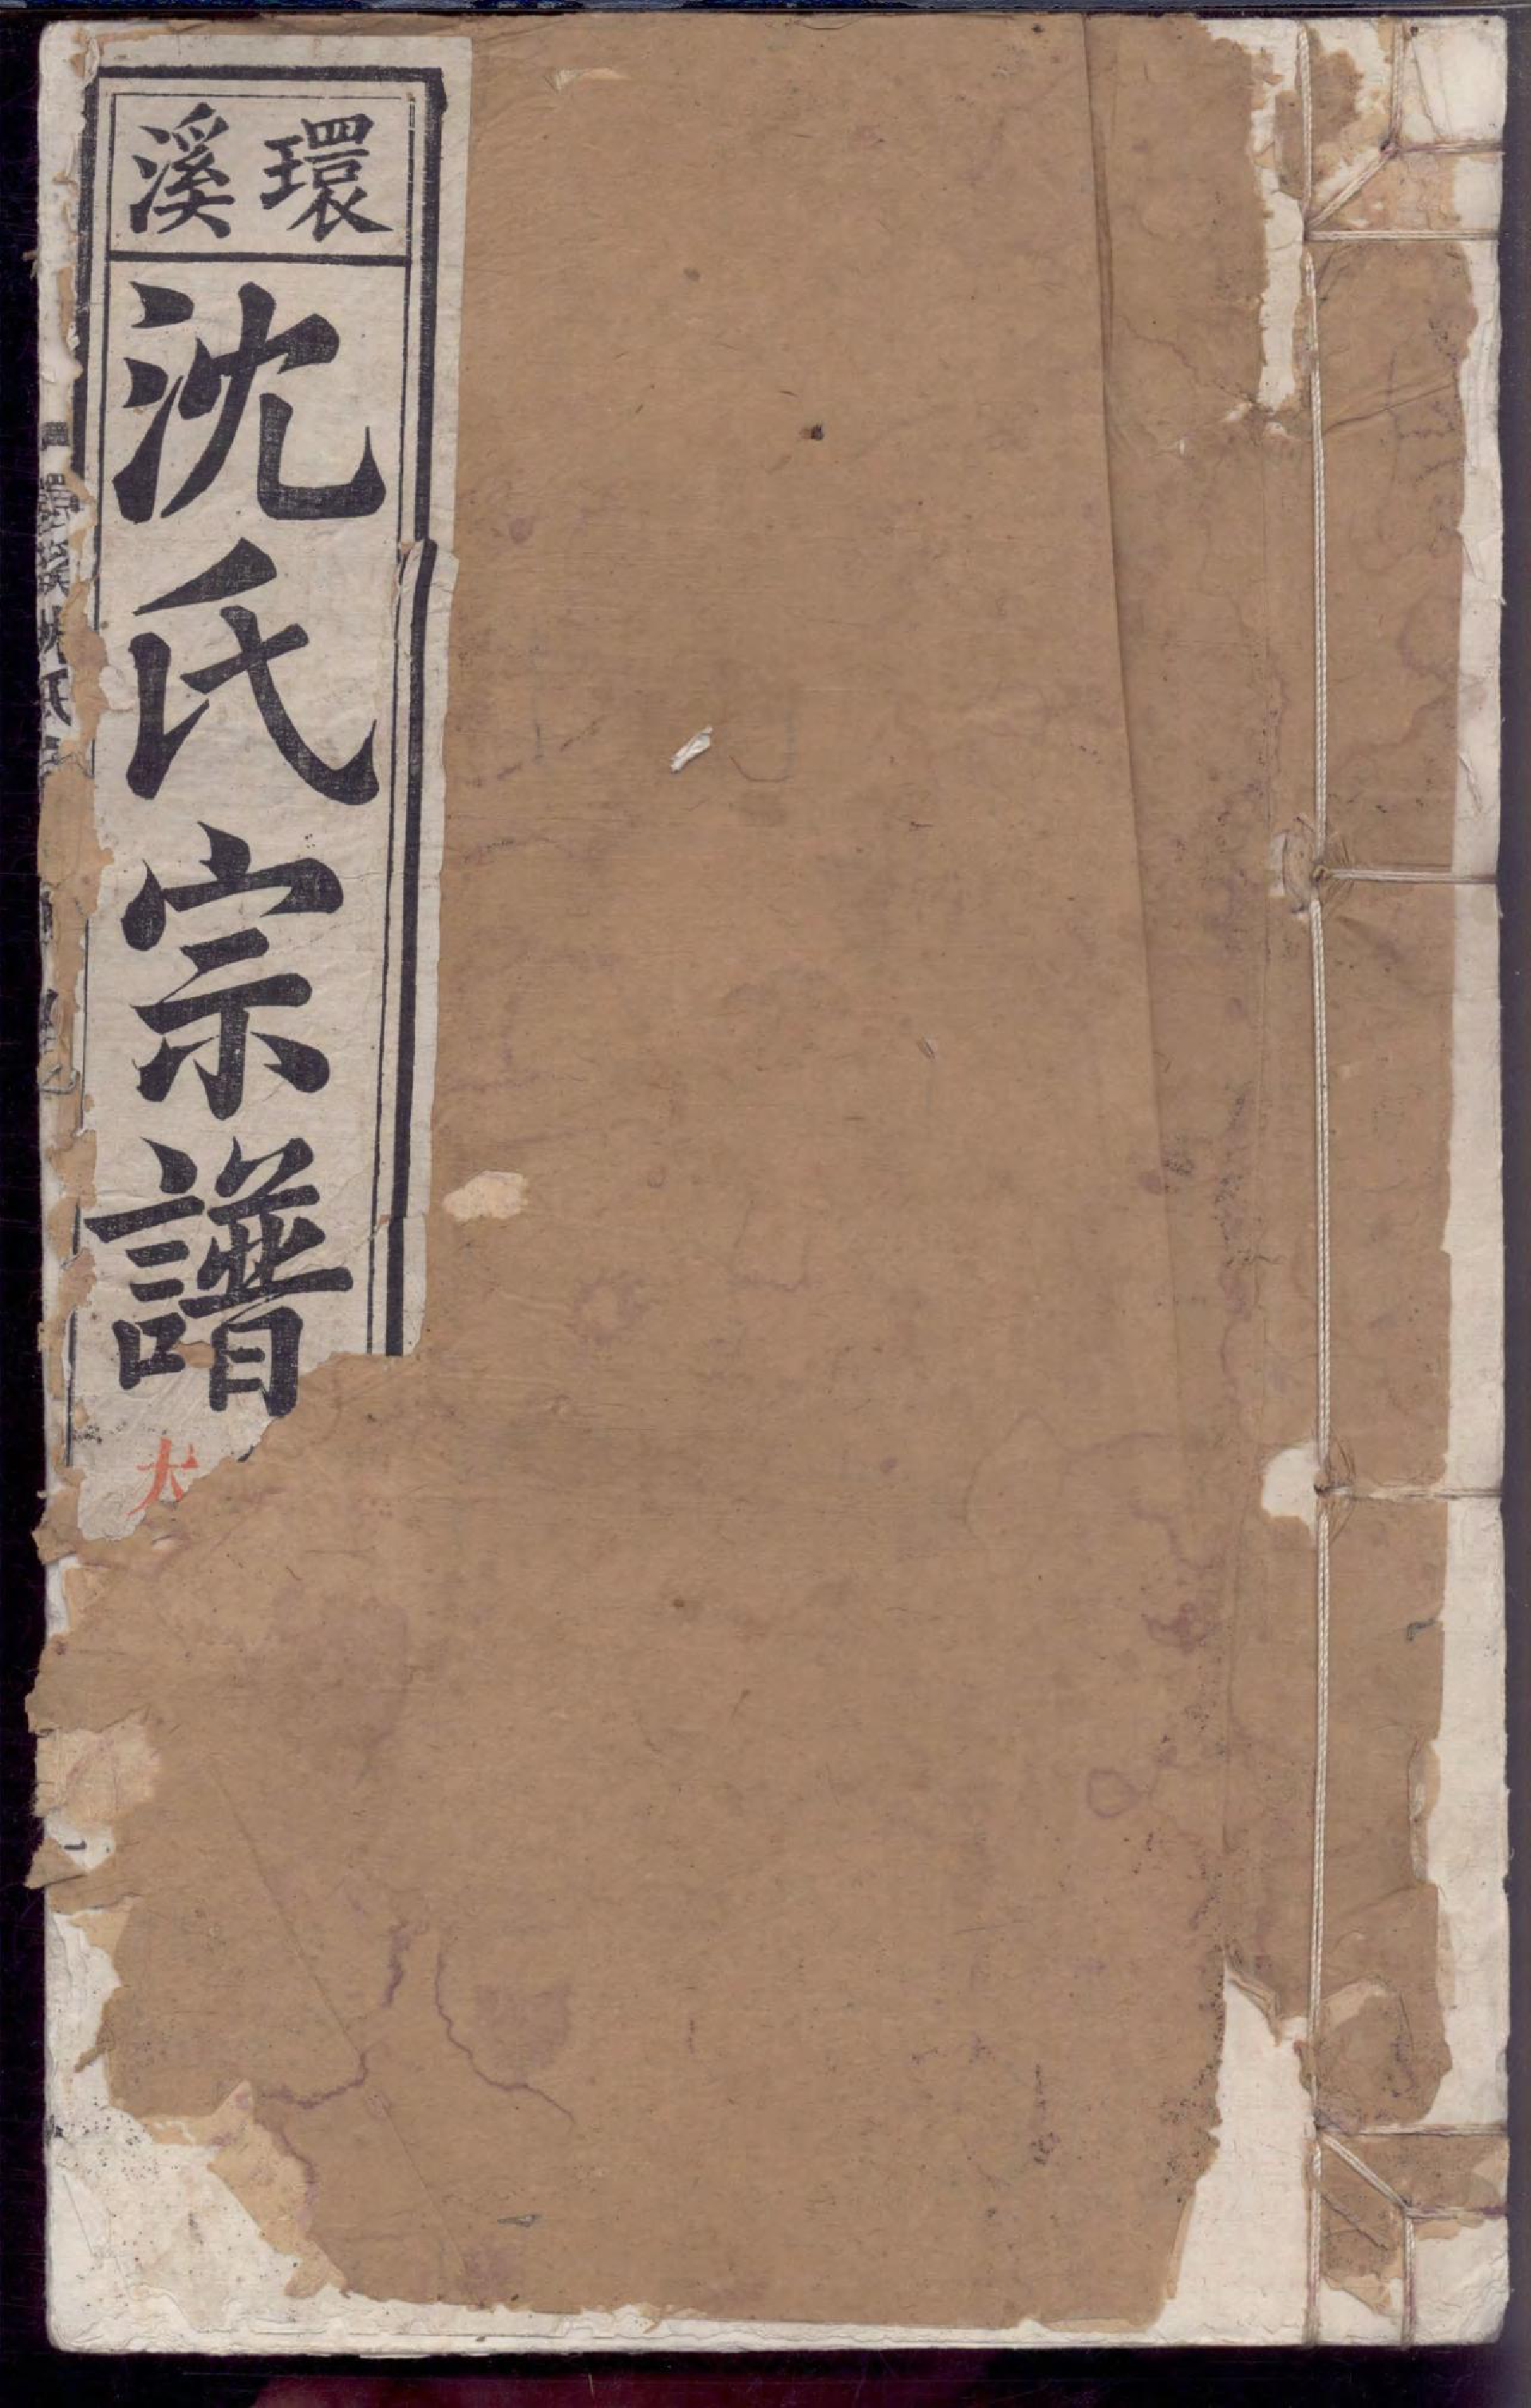 環溪
沈氏宗譜